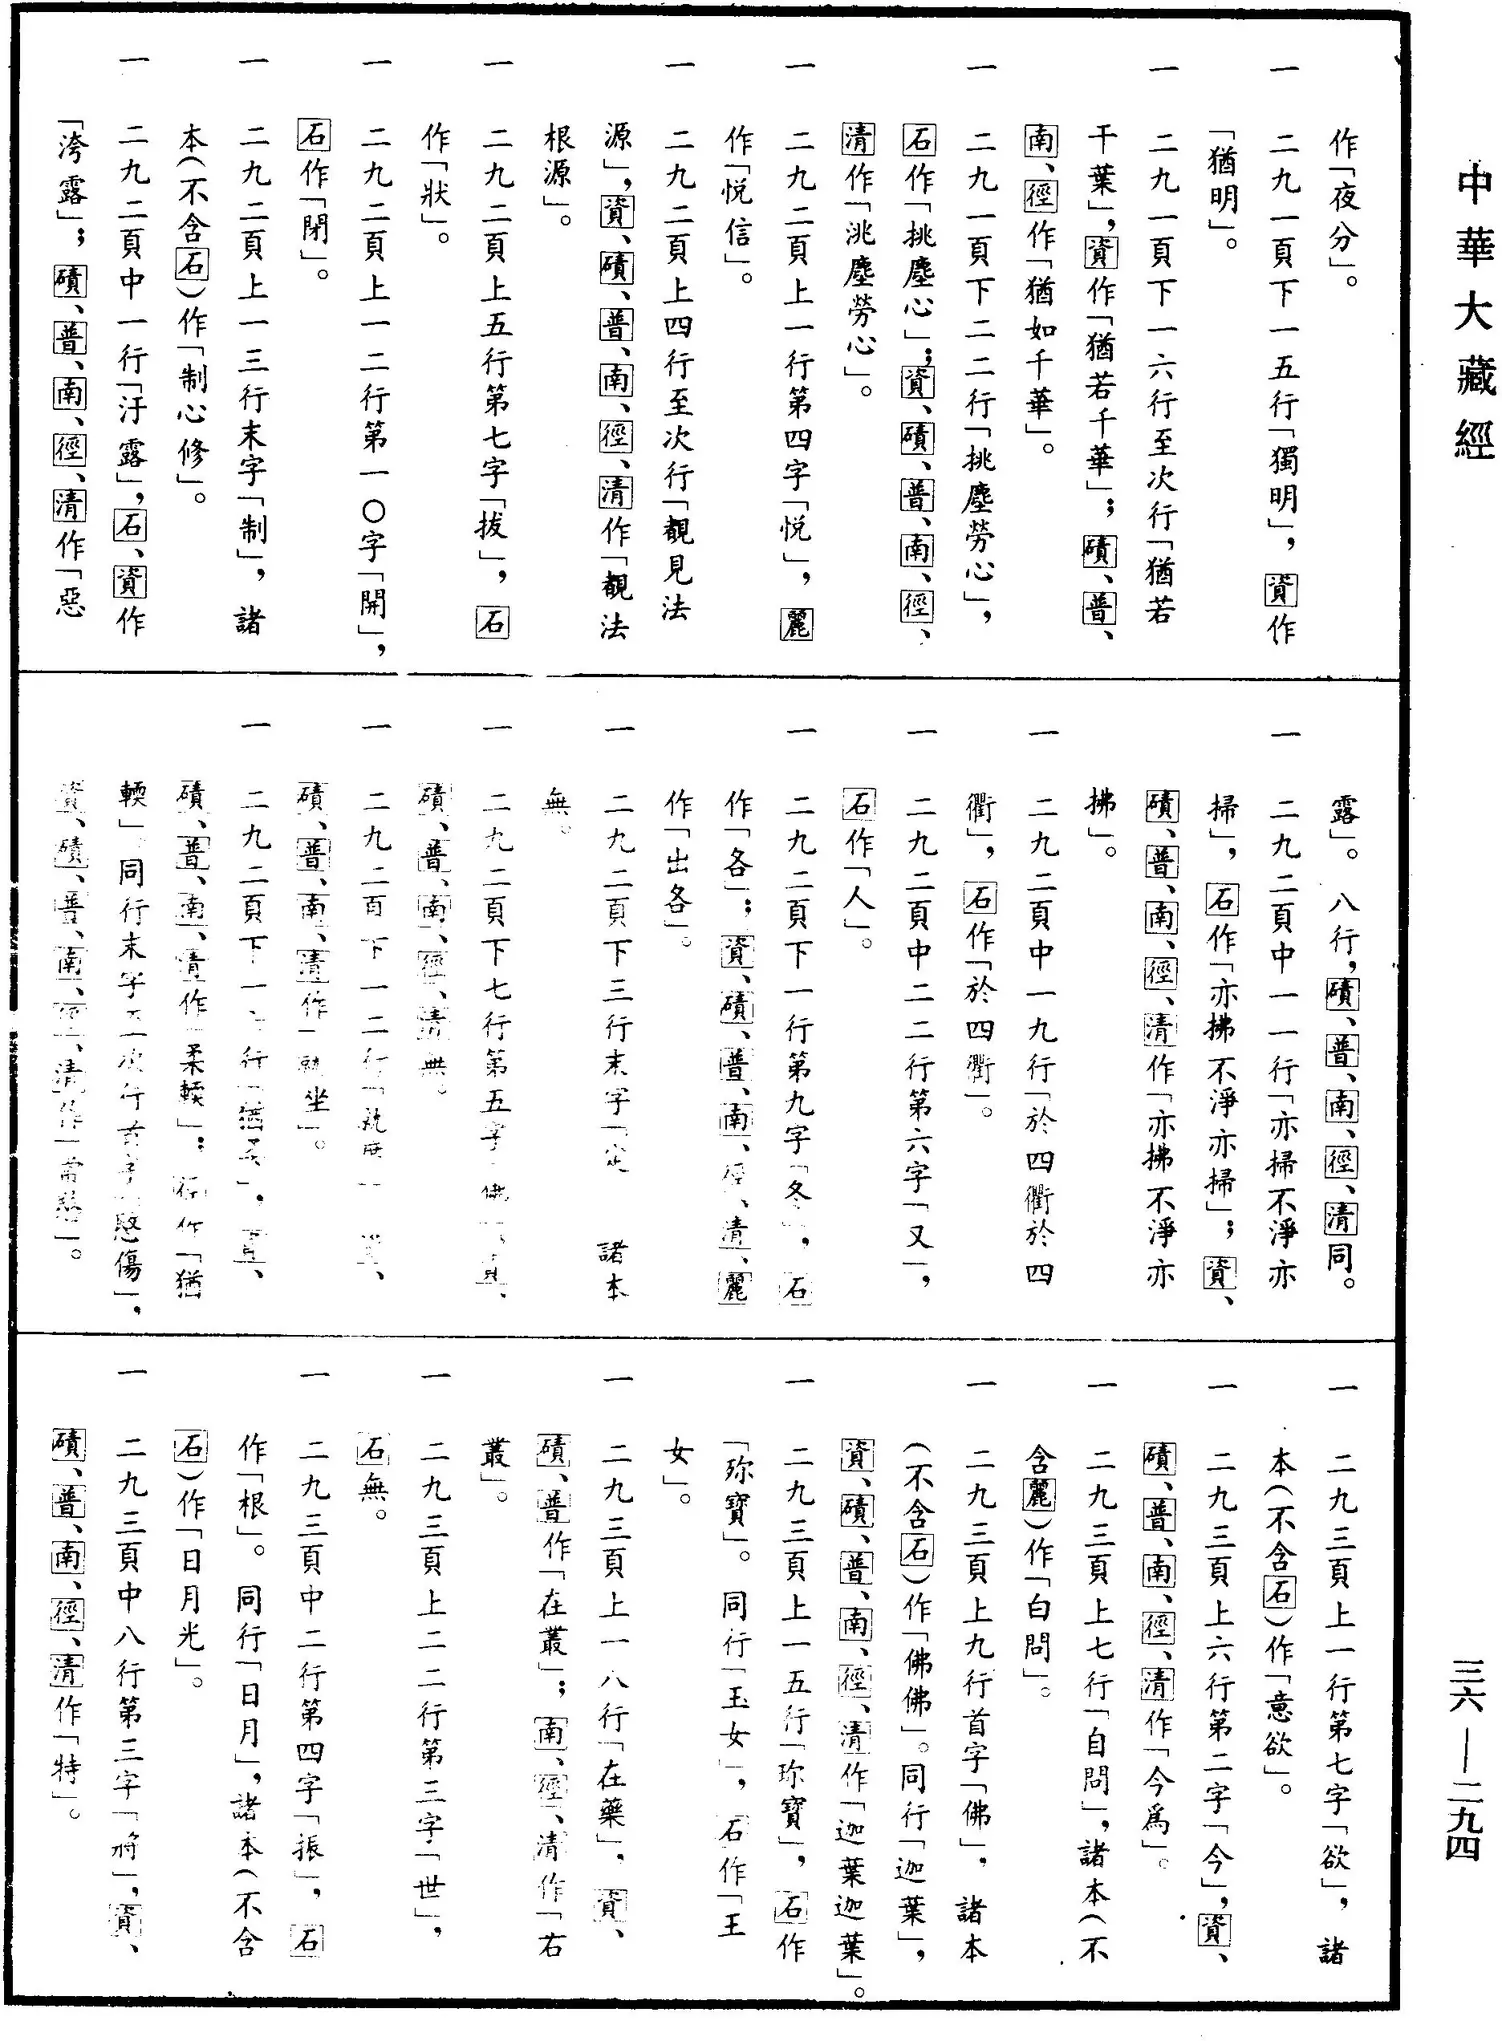 中華大藏經
作「夜分」。
一 二九一頁下一五行「獨明」，資作
「猶明」。
一 二九一頁下一六行至次行「猶若
千葉」，資作「猶若千華」；磧、普、
南、徑作「猶如千華」。
一 二九一頁下二二行「挑塵勞心」，
石作「挑塵心」；資、磧、普、南、徑、
清作「洮塵勞心」。
一 二九二頁上一行第四字「悅」，麗
作「悅信」。
一 二九二頁上四行至次行「覩見法
源」，資、磧、普、南、徑、清作「覩法
根源」。
一 二九二頁上五行第七字「拔」，石
作「狀」。
一 二九二頁上一二行第一〇字「開」，
石作「閉」。
一 二九二頁上一三行末字「制」，諸
本（不含石）作「制心修」。
一 二九二頁中一行「汙露」，石、資作
「洿露」；磧、普、南、徑、清作「惡
露」。八行，磧、普、南、徑、清同。
一 二九二頁中一一行「亦掃不淨亦
掃」，石作「亦拂不淨亦掃」；資、
磧、普、南、徑、清作「亦拂不淨亦
拂」。
一 二九二頁中一九行「於四衢於四
衢」，石作「於四衢」。
一 二九二頁中二二行第六字「又」，
石作「人」。
一 二九二頁下一行第九字「冬」，石
作「各」；資、磧、普、南、徑、清、麗
作「出各」。
一 二九二頁下三行末字「定」 諸本
無。
一 二九二頁下七行第五字「佛」，資、
磧、普、南、徑、清無。
一 二九二頁下一二行「就座」 資、
磧、普、南、清作「就坐」。
一 二九二頁下一 行「猶 」，資、
磧、普、南、清作「柔輭」；徑作「猶
輭」。同行末字至次行首字「愍傷」，
資、磧、普、南、徑、清作「 愍」。
一 二九三頁上一行第七字「欲」，諸
本（不含石）作「意欲」。
一 二九三頁上六行第二字「今」，資、
磧、普、南、徑、清作「今爲」。
一 二九三頁上七行「自問」，諸本（不
含麗）作「白問」。
一 二九三頁上九行首字「佛」，諸本
（不含石）作「佛佛」。同行「迦葉」，
資、磧、普、南、徑、清作「迦葉迦葉」。
一 二九三頁上一五行「珎寶」，石作
「珍寶」。同行「玉女」，石作「王
女」。
一 二九三頁上一八行「在藥」，資、
磧、普作「在叢」；南、徑、清作「右
叢」。
一 二九三頁上二二行第三字「世」，
石無。
一 二九三頁中二行第四字「振」，石
作「根」。同行「日月」，諸本（不含
石）作「日月光」。
一 二九三頁中八行第三字「將」，資、
磧、普、南、徑、清作「特」。
三六—二九四